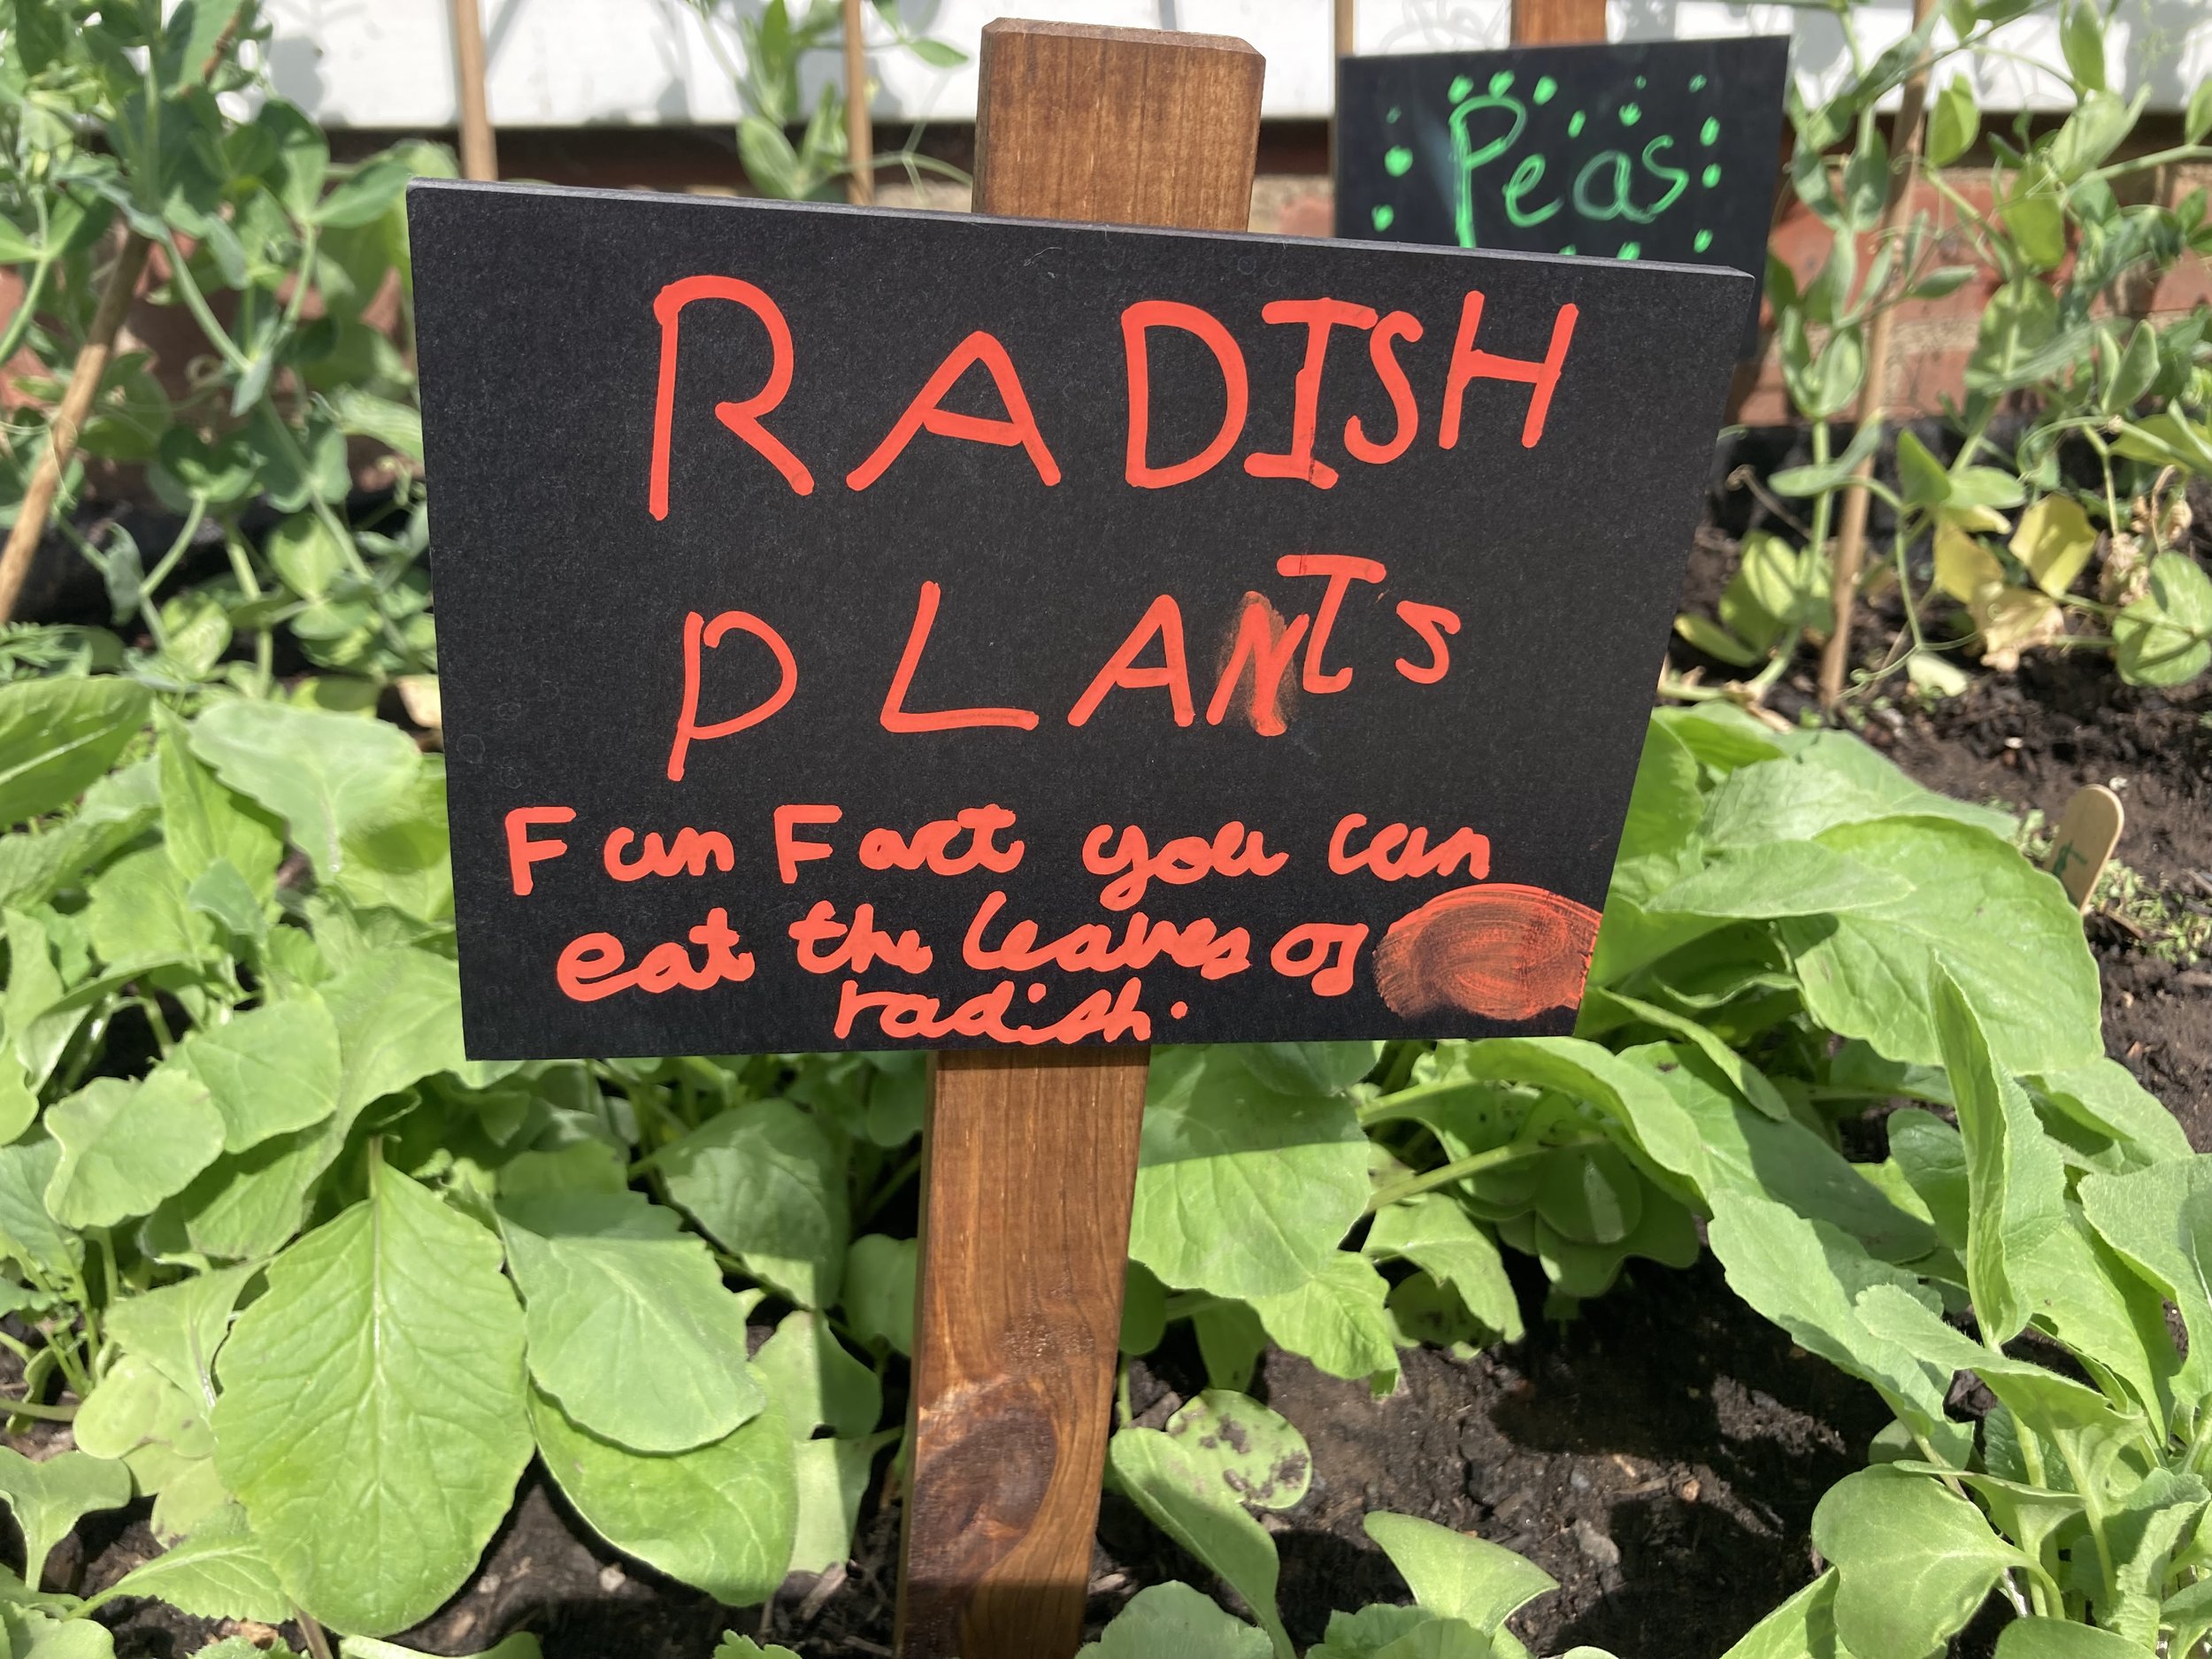 Peas
RADISH
PLANTs
Fun Fact you can
eat the leaves of
radish.